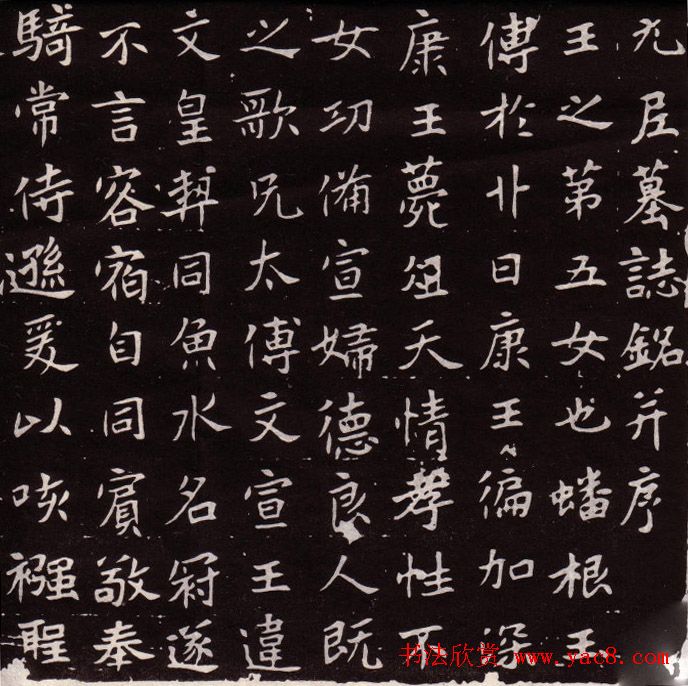 元尼墓誌銘并序
王之第五女也蟠根玉
傅於丱日康王徧加深
康王薨俎天情孝性不
女功備宣婦德良人既
之歌兄太傅文宣王違
文皇契同魚水名冠遂
不言容宿自同賓敬奉
騎常侍遜爰以咳襁聖
书法欣赏 www.yac8.com